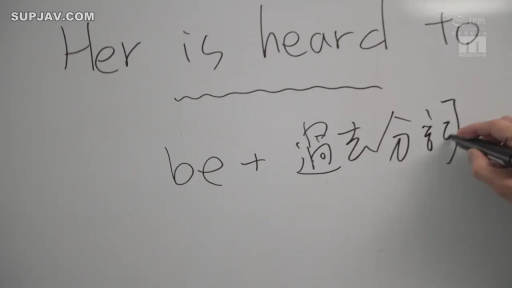 SUPJAV.COM
Her is heard to
be + 過去分詞